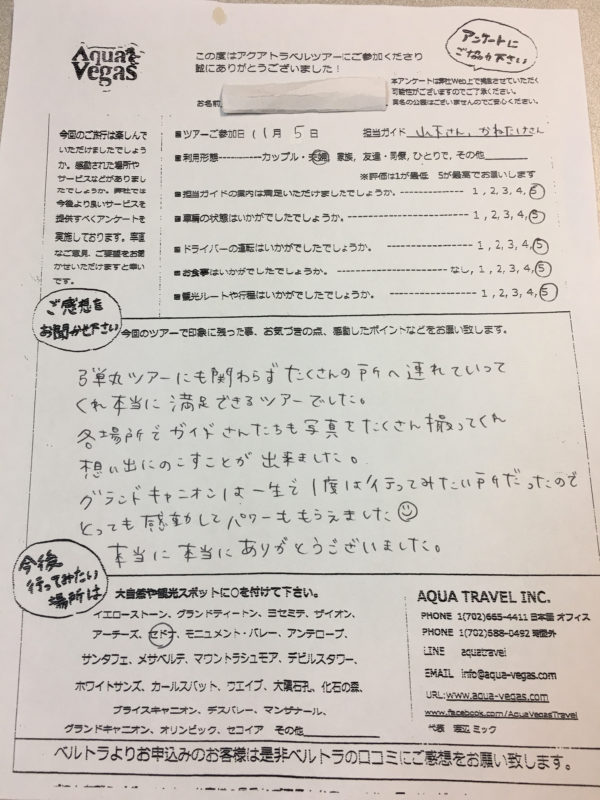 Aqua Vegas
この度はアクアトラベルツアーにご参加くださり
誠にありがとうございました！
アンケートに
ご協力下さい
本アンケートは弊社Web上で掲載させていただく
可能性がございますのでご了承ください。
実名の公開はございませんのでご安心ください。
お名前
今回のご旅行は楽しんで
いただけましたでしょう
か。感動された場所や
サービスなどがありまし
たでしょうか。弊社では
今後より良いサービスを
提供すべくアンケートを
実施しております。率直
なご意見、ご要望をお聞
かせいただけますと幸い
です。
■ツアーご参加日 11月 5日 担当ガイド 山本さん、かねたけさん
■利用形態----------カップル・夫婦、家族、友達・同僚、ひとりで、その他
※評価は1が最低 5が最高でお願いします
■担当ガイドの案内は満足いただけましたでしょうか。 1, 2, 3, 4, 5
■車輌の状態はいかがでしたでしょうか。 1, 2, 3, 4, 5
■ドライバーの運転はいかがでしたでしょうか。 1, 2, 3, 4, 5
■お食事はいかがでしたでしょうか。 なし, 1, 2, 3, 4, 5
■観光ルートや行程はいかがでしたでしょうか。 1, 2, 3, 4, 5
ご感想を
お聞かせ下さい
今回のツアーで印象に残った事、お気づきの点、感動したポイントなどをお願い致します。
弾丸ツアーにも関わらずたくさんの所へ連れていって
くれ本当に満足できるツアーでした。
各場所でガイドさんたちも写真をたくさん撮ってくれ
想い出にのこすことが出来ました。
グランドキャニオンは一生で1度は行ってみたい所だったので
とっても感動してパワーももらえました☺
本当に本当にありがとうございました。
今後
行ってみたい
場所は
大自然や観光スポットに○を付けて下さい。
イエローストーン、グランドティートン、ヨセミテ、ザイオン、
アーチーズ、セドナ、モニュメント・バレー、アンテロープ、
サンタフェ、メサベルデ、マウントラシュモア、デビルスタワー、
ホワイトサンズ、カールスバット、ウエイブ、大隕石孔、化石の森、
ブライスキャニオン、デスバレー、マンザナール、
グランドキャニオン、オリンピック、セコイア その他
AQUA TRAVEL INC.
PHONE 1(702)665-4411 日本語 オフィス
PHONE 1(702)588-0492 時間外
LINE aquatravel
EMAIL info@aqua-vegas.com
URL:www.aqua-vegas.com
www.facebook.com/AquaVegasTravel
代表 渡辺 ミック
ベルトラよりお申込みのお客様は是非ベルトラの口コミにご感想をお願い致します。